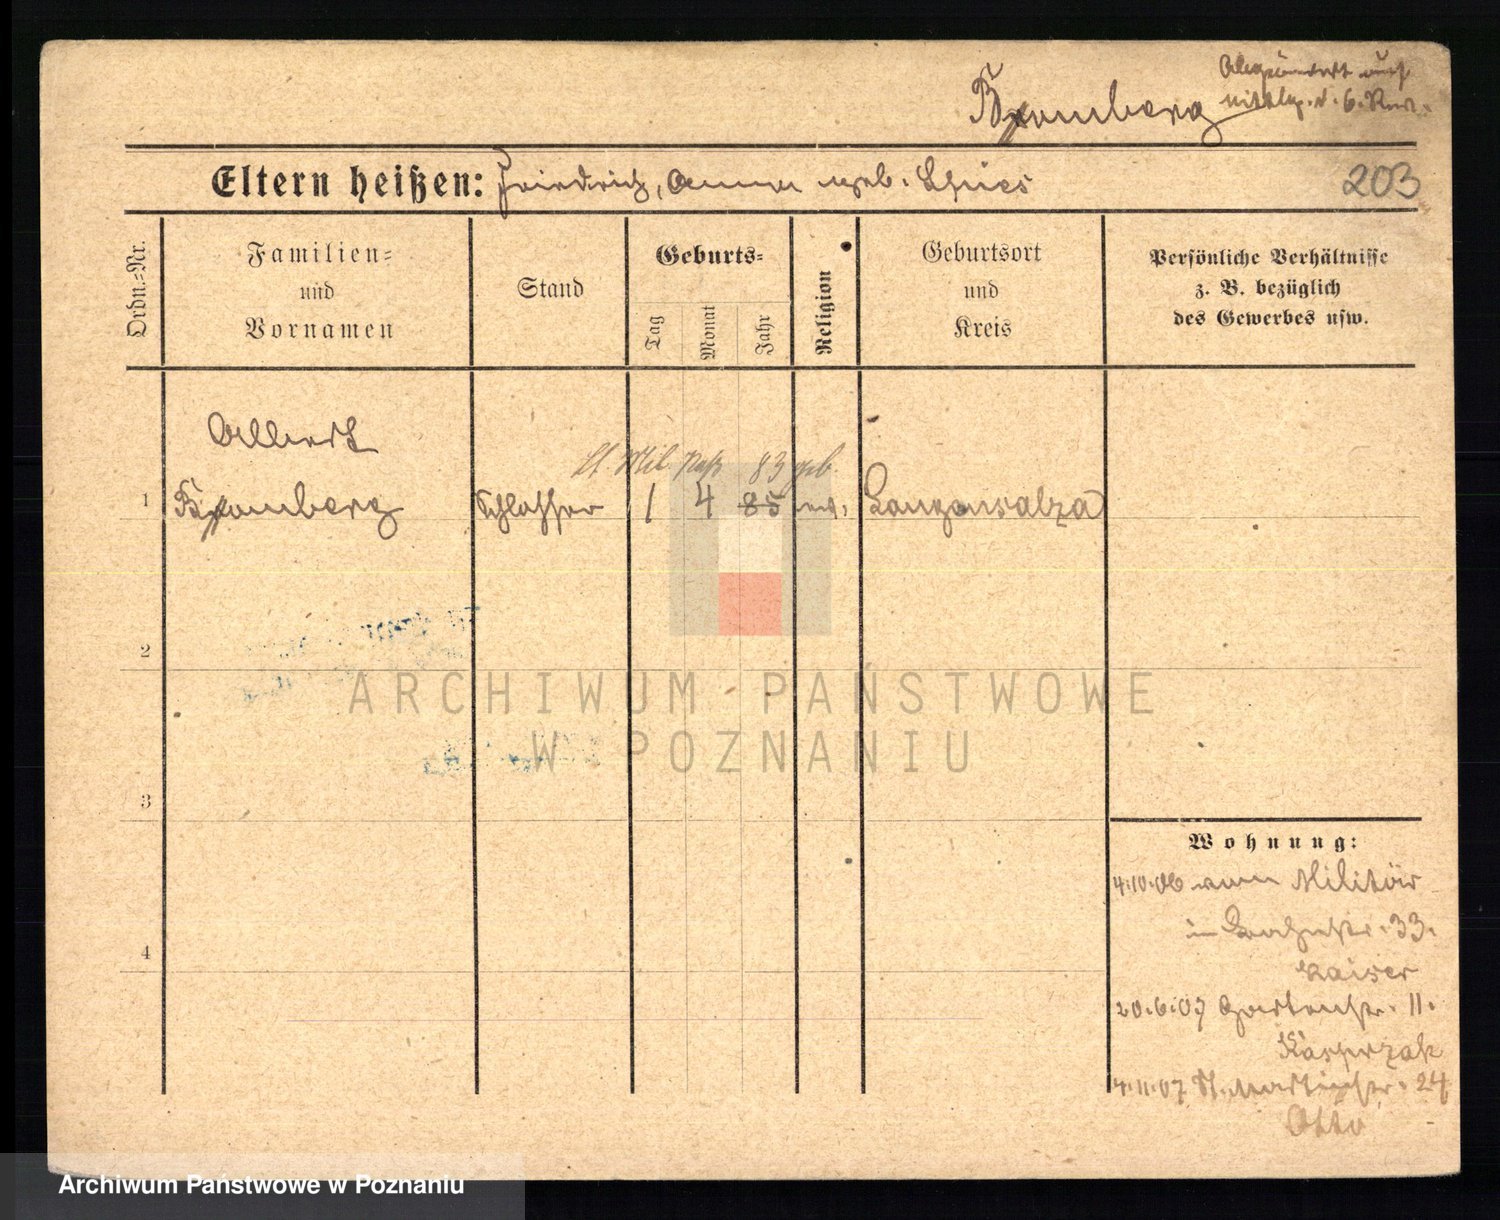 Abgeändert auf
Bromberg
Mittlg. v. 6. Rev.
Eltern heißen: Friedrich, Anna geb. Schies
203
Ordn.-Nr.
Familien-
und
Vornamen
Stand
Geburts-
Tag
Monat
Jahr
Religion
Geburtsort
und
Kreis
Persönliche Verhältnisse
z. B. bezüglich
des Gewerbes usw.
Albert
lt. Mil. Paß 83 geb.
1 Bromberg Schlosser 1 4 85 ev. Langensalza
2
3
4
Wohnung:
4.10.06 vom Militär
in 33.
Kaiser
20.6.07 Gartenstr. 11.
Kasprzak
4.11.07 St. Martinstr. 24
Otto
ARCHIWUM PAŃSTWOWE
W POZNANIU
Archiwum Państwowe w Poznaniu